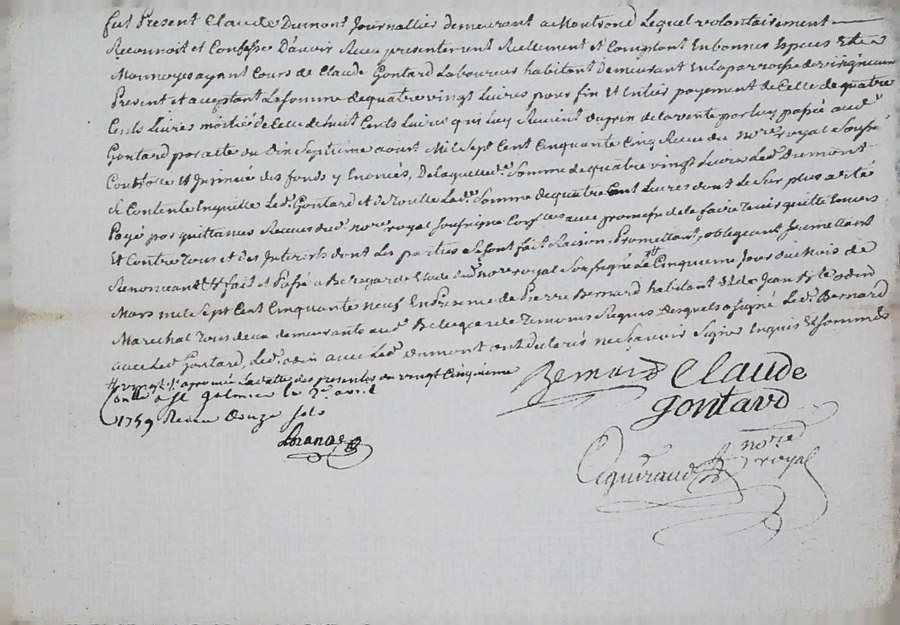 fut Present Claude Dumont Journallier demeurant a Montrond Lequel volontairement
Reconnoit et Confesse D'avoir Receu presentement Reellement et Comptant En bonnes Especes Et
Monnoyes ayant Cours de Claude Gontard Laboureur habitant demeurant En la parroche de
Present et acceptant La somme de quatre vingt Livres pour fin Et Entier payement de Celle de quatre
Cents Livres moitié de Celle de huit Cents Livres qui luy Revient du prix de la vente par luy passé aud.
Gontard par acte du Dix Septieme aout Mil Sept Cent Cinquante Cinq Receu du nore. royal Soussé.
Controllé Et Insinué des fonds y Enoncés, De laquelle Somme de quatre vingt Livres Led. Dumont
Contente En quitte Led. Gontard et de Toutte Lad. Somme de quatre Cent Livres dont Le Sur plus a été
Payé par quittances Receues dud. nore. royal Soussigne avec promesse de le faire Tenir quitte Envers
Et Contre Tous et des Interets dont Les parties Se sont fait Raison. Promettant, obligeant, Soumettant
Renonceant & fait et Passé a Bellegarde Etude dud. nore royal Soussigné Le Cinquieme Jour du Mois de
Mars mil Sept Cent Cinquante neuf En Presence de Pierre Bernard habitant Et de Jean odin
Marechal Tous deux demeurants aud. Bellegarde Temoins Requis Desquels a signé Led. Bernard
avec Led. Gontard, Led. odin avec Led. Dumont ont declaré ne Scavoir Signer Enquis Et Sommés
la datte des presentes du vingt Cinquieme
a St galmier le 2e avril
1759 Receu Douze Sols
Bernard Claude
gontard
nore
royal